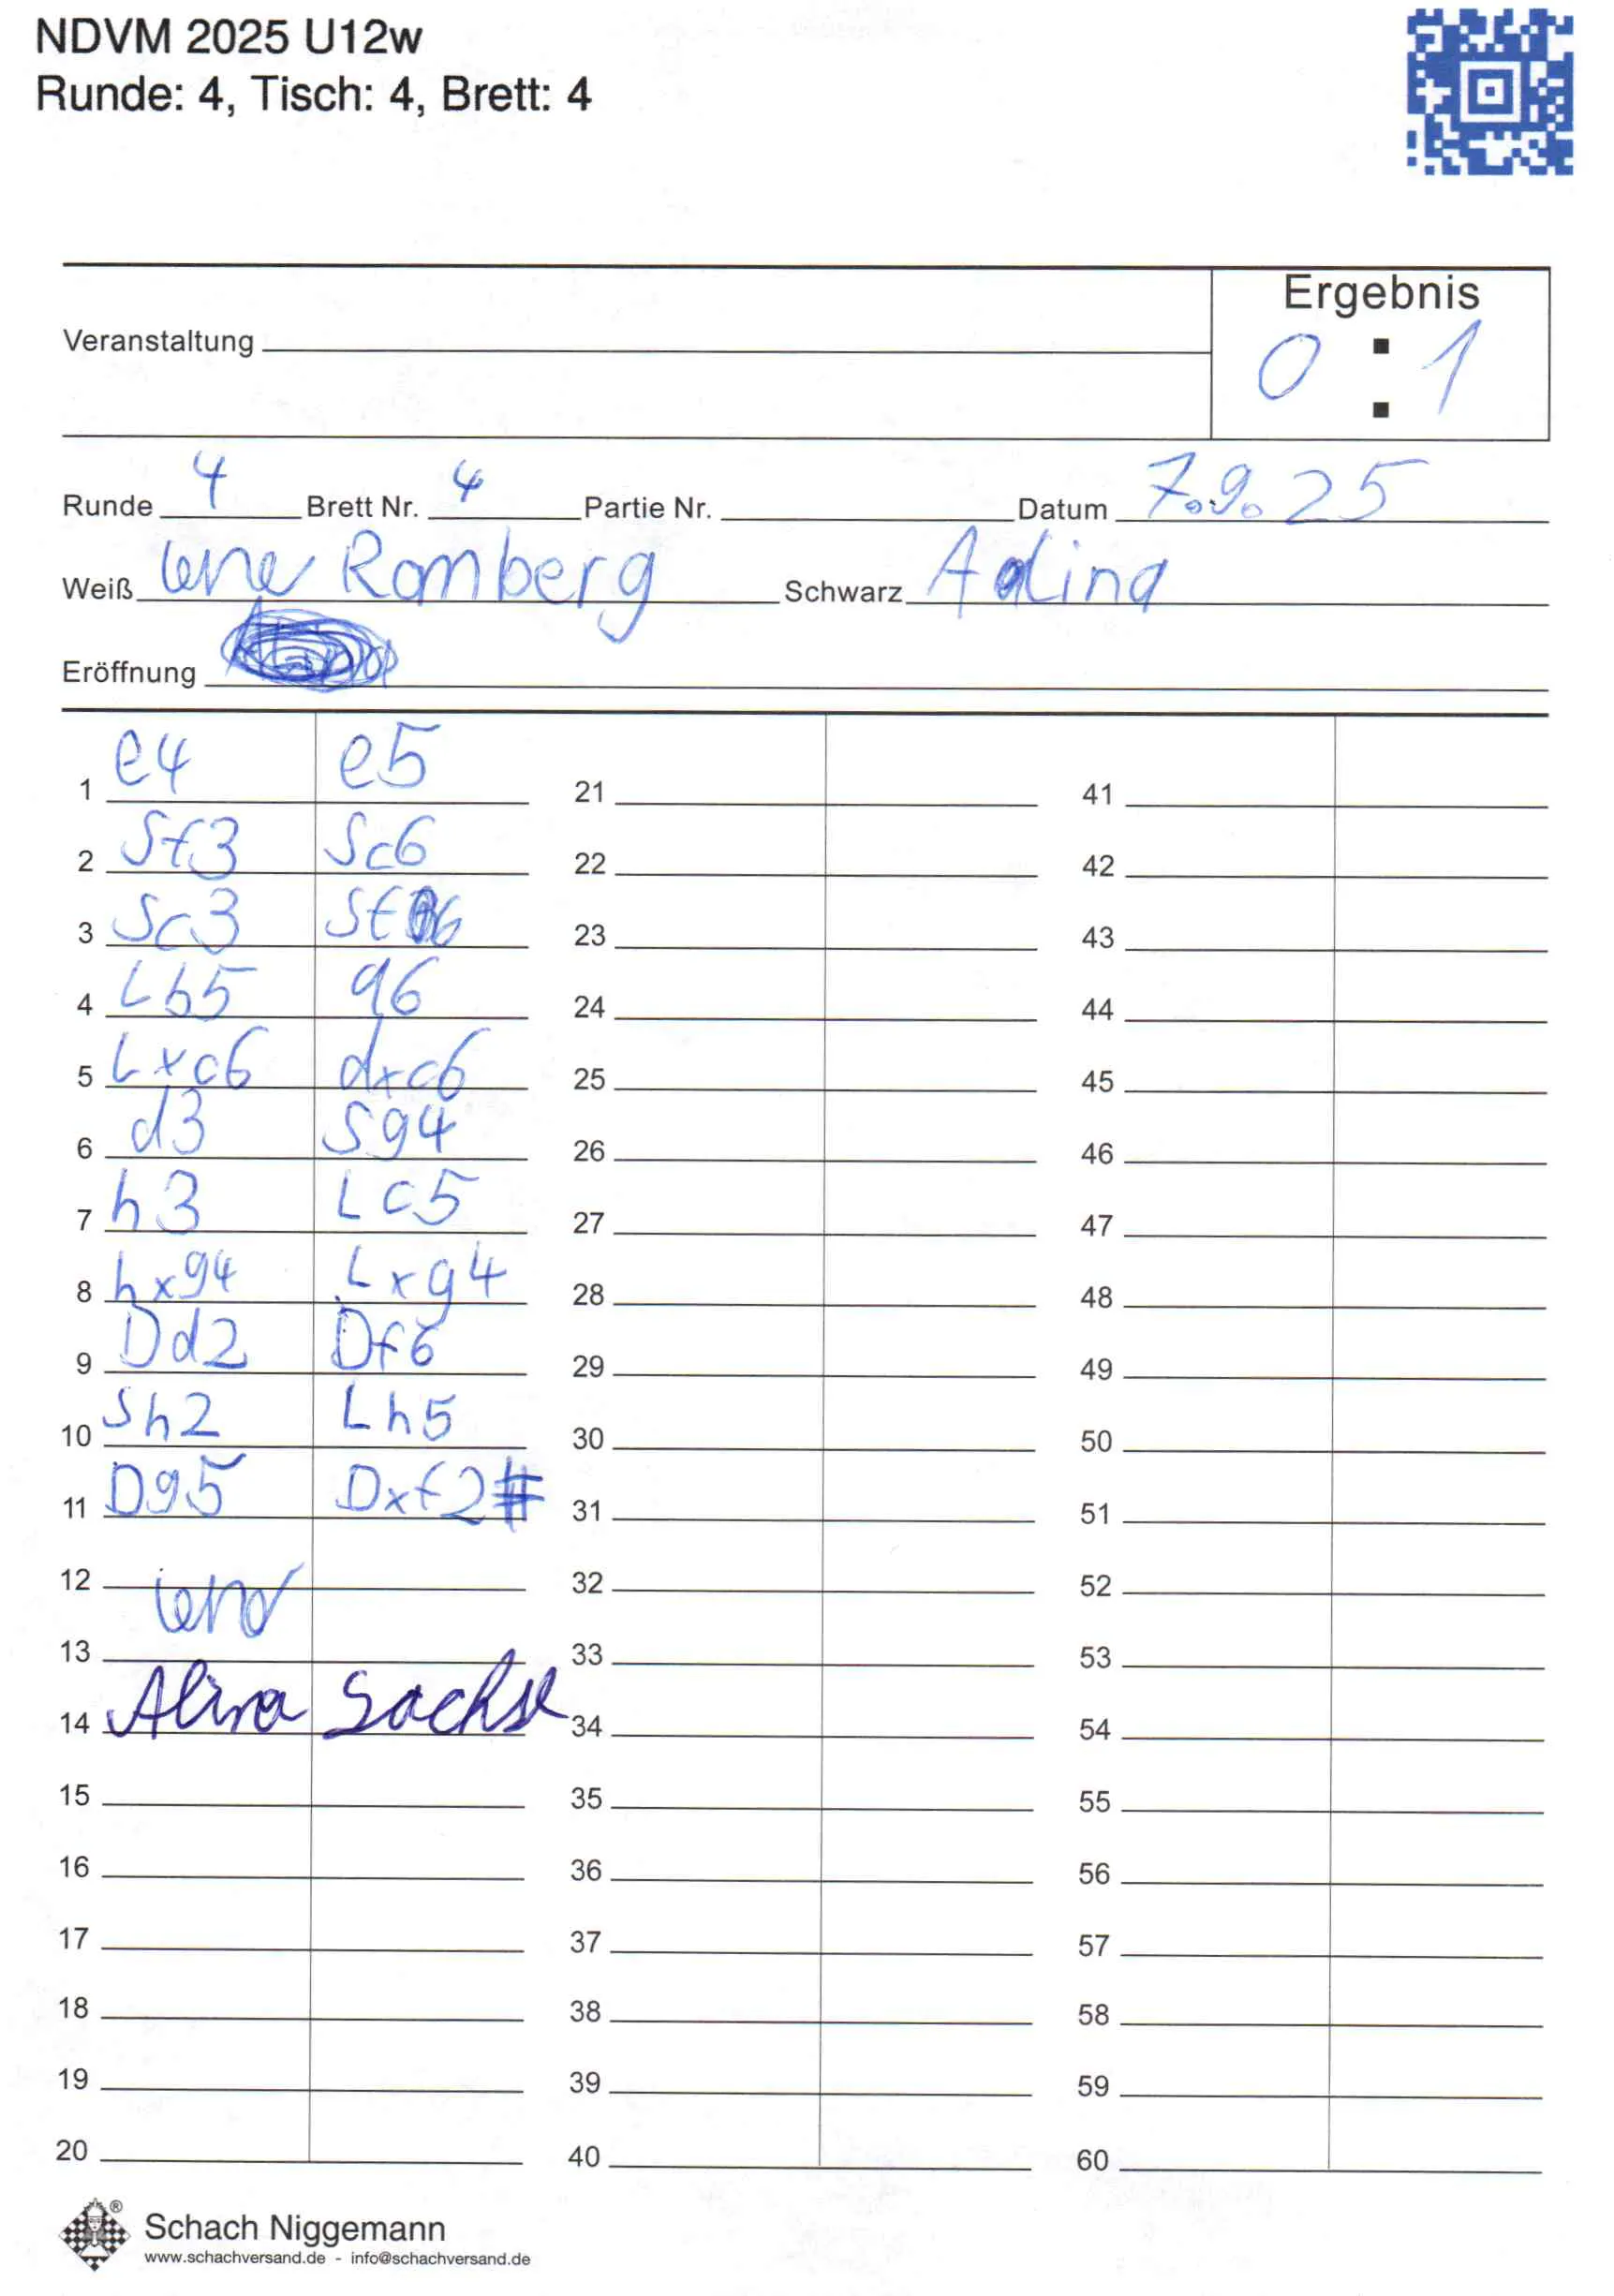 NDVM 2025 U12w
Runde: 4, Tisch: 4, Brett: 4
Ergebnis
Veranstaltung 0 : 1
Runde 4 Brett Nr. 4 Partie Nr. Datum 7.9.25
Weiß Lene Romberg Schwarz Adlina
Eröffnung
1 e4 e5 21 41
2 Sf3 Sc6 22 42
3 Sc3 Sf6 23 43
4 Lb5 a6 24 44
5 Lxc6 dxc6 25 45
6 d3 Sg4 26 46
7 h3 Lc5 27 47
8 hxg4 Lxg4 28 48
9 Dd2 Df6 29 49
10 Sh2 Lh5 30 50
11 Dg5 Dxf2# 31 51
12 32 52
13 33 53
14 Alina Sachse 34 54
15 35 55
16 36 56
17 37 57
18 38 58
19 39 59
20 40 60
Schach Niggemann
www.schachversand.de - info@schachversand.de